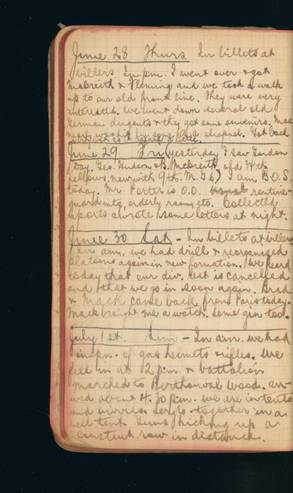 June 28 Thurs In billets at
Villers. In p.m. I went over & got
and Fleming and we took a walk
up to our old front line. They were very
interested. We went down several old
German dugouts & they got some souvenirs. Mac
Got back
June 29 Fri yesterday I saw Gordon
Day, Geo.
fellows now with 9th M.G.C.) I am B.O.S.
today. Mr. Porter is O.O. usual routine -
guard mtg, orderly room etc. Collected
Sports wrote some letters at night.
June 30 Sat - In billets at Villers
In am. we had drill & reorganized
platoons again in new formation. We heard
today that our div. rest is cancelled
and that we go in soon again. Brad
& Mack came back from Paris today.
Mack brought me a watch. some gin too.
July 1st Sun - In am. we had
inspn. of gas helmets rifles. We
fell in at 12 p.m. & battalion
marched to Berthonval Wood. arr-
ived about 4.30 p.m. we are in tents
and together in a
bell tent. Guns kicking up a
constant row in distance.